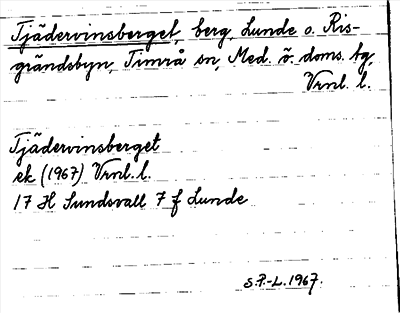 Tjädervinsberget, berg, Lunde o. Ris-
grändsbyn, Timrå sn, Med. ö. doms. tg,
Vrnl. l.
Tjädervinsberget
ek (1967) Vrnl. l.
17 H Sundsvall 7 f Lunde
S.P.-L. 1967.